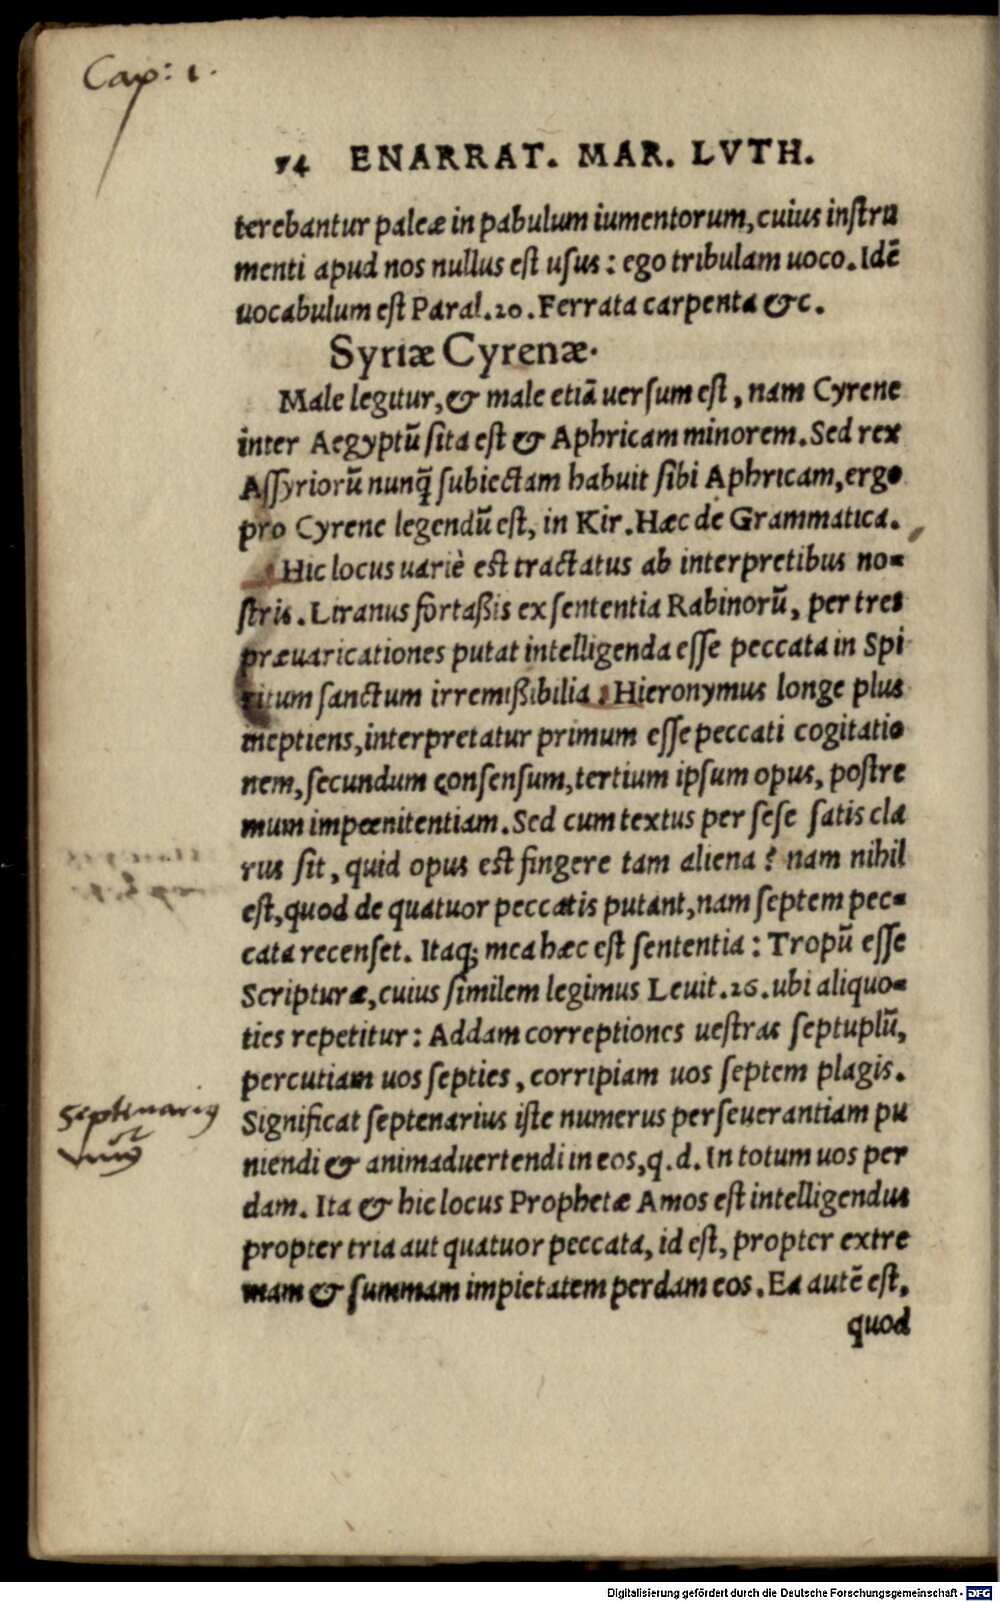 Cap: 1.
74 ENARRAT. MAR. LVTH.
terebantur paleæ in pabulum iumentorum, cuius instru
menti apud nos nullus est usus: ego tribulam uoco. Idē
uocabulum est Paral. 20. Ferrata carpenta &c.
Syriæ Cyrenæ.
Male legitur, & male etiā uersum est, nam Cyrene
inter Aegyptū sita est & Aphricam minorem. Sed rex
Assyriorū nunq̄ subiectam habuit sibi Aphricam, ergo
pro Cyrene legendū est, in Kir. Hæc de Grammatica.
Hic locus uariè est tractatus ab interpretibus no-
stris. Liranus fortaßis ex sententia Rabinorū, per tres
præuaricationes putat intelligenda esse peccata in Spi
ritum sanctum irremißibilia: Hieronymus longe plus
ineptiens, interpretatur primum esse peccati cogitatio
nem, secundum consensum, tertium ipsum opus, postre
mum impœnitentiam. Sed cum textus per sese satis cla
rus sit, quid opus est fingere tam aliena? nam nihil
est, quod de quatuor peccatis putant, nam septem pec-
cata recenset. Itaq; mea hæc est sententia: Tropū esse
Scripturæ, cuius similem legimus Leuit. 26. ubi aliquo-
ties repetitur: Addam correptiones uestras septuplū,
percutiam uos septies, corripiam uos septem plagis.
Septenarius
nūs
Significat septenarius iste numerus perseuerantiam pu
niendi & animaduertendi in eos, q. d. In totum uos per
dam. Ita & hic locus Prophetæ Amos est intelligendus
propter tria aut quatuor peccata, id est, propter extre
mam & summam impietatem perdam eos. Ea autē est,
quod
Digitalisierung gefördert durch die Deutsche Forschungsgemeinschaft - DFG